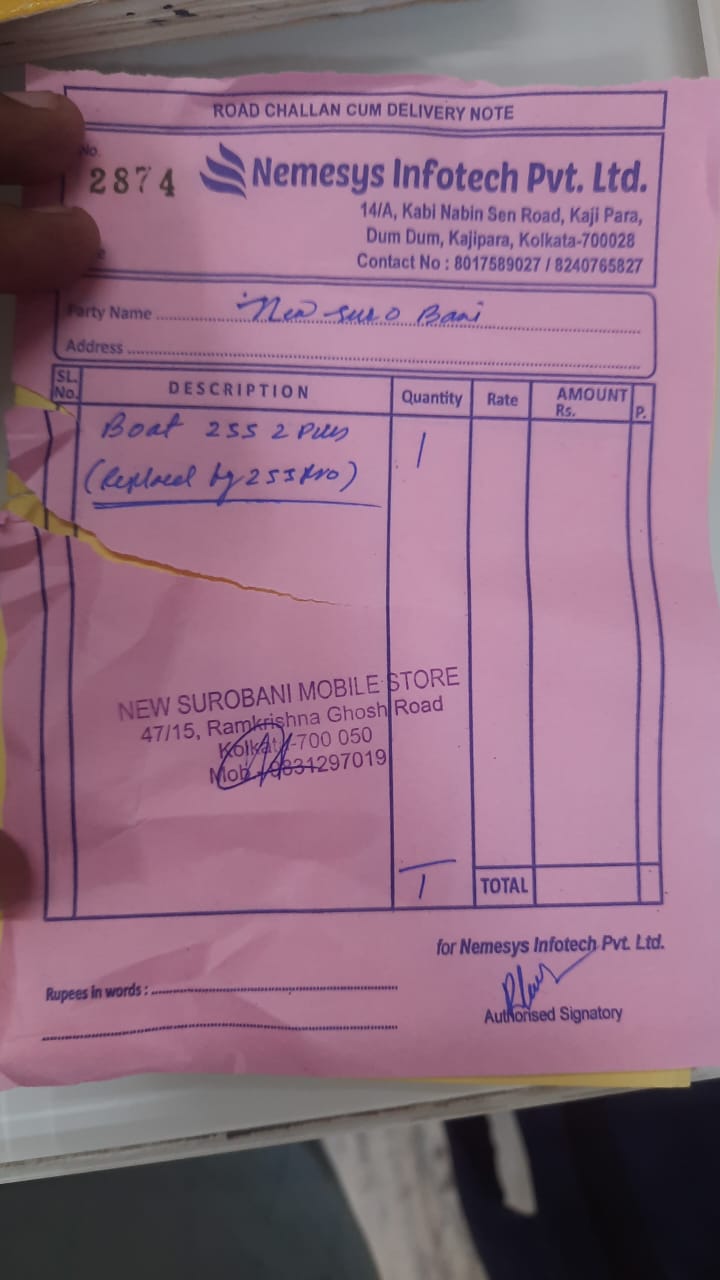 ROAD CHALLAN CUM DELIVERY NOTE
No.
2874
Nemesys Infotech Pvt. Ltd.
14/A, Kabi Nabin Sen Road, Kaji Para,
Dum Dum, Kajipara, Kolkata-700028
Contact No : 8017589027 / 8240765827
Party Name New Suro Bani
Address
SL. No. DESCRIPTION Quantity Rate AMOUNT Rs. P.
Boat 255 2 Plus 1
(Replaced by 255 Pro)
NEW SUROBANI MOBILE STORE
47/15, Ramkrishna Ghosh Road
Kolkata-700 050
Mob.-9831297019
1 TOTAL
for Nemesys Infotech Pvt. Ltd.
Rupees in words :
Authorised Signatory